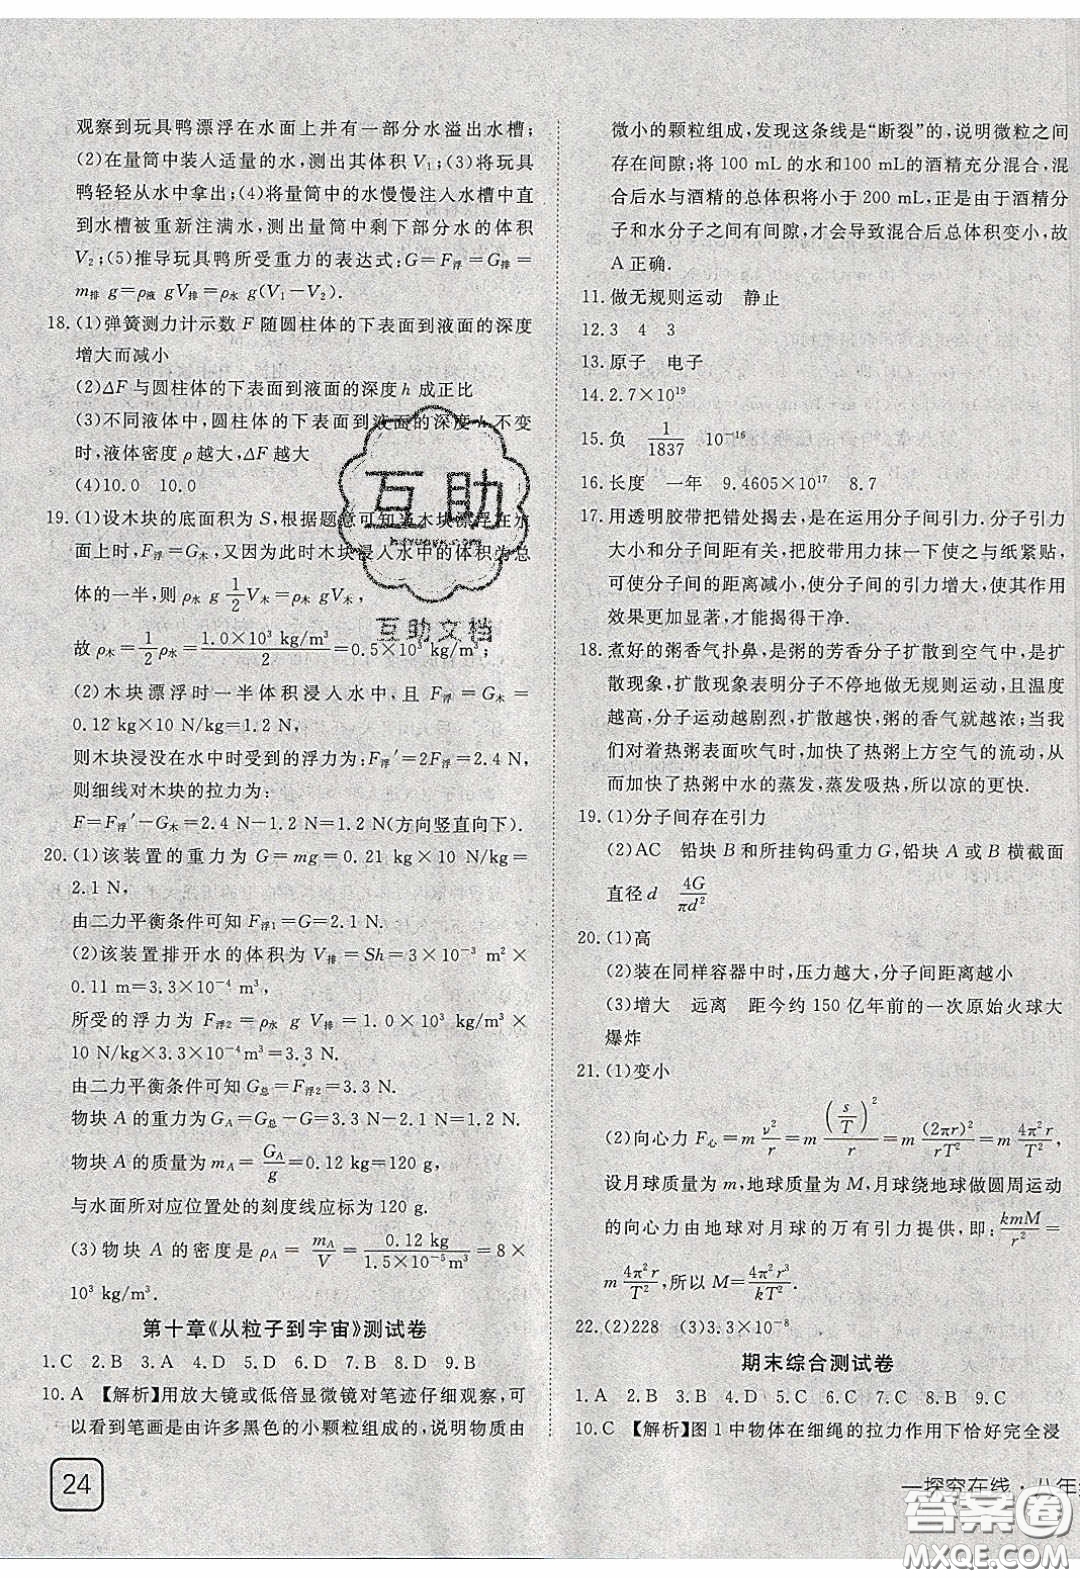 观察到玩具鸭漂浮在水面上并有一部分水溢出水槽;
(2)在量筒中装入适量的水,测出其体积 V₁;(3)将玩具
鸭轻轻从水中拿出;(4)将量筒中的水慢慢注入水槽,
直到水槽被重新注满水,读出量筒中剩下部分水的体积
V₂;(5)推导玩具鸭所受重力的表达式:G=F浮=G排=
m排 g=ρ液 gV排=ρ水 g(V₁-V₂).
18.(1)弹簧测力计示数 F 随圆柱体的下表面到液面的深度
增大而减小
(2)ΔF 与圆柱体的下表面到液面的深度 h 成正比
(3)不同液体中,圆柱体的下表面到液面的深度 h 不变
时,液体密度 ρ 越大,ΔF 越大
(4)10.0 10.0
19.(1)设木块的底面积为 S,根据题意可知当木块漂浮在水
面上时,F浮=G木,又因为此时木块浸入水中的体积为总
体的一半,则 ρ水 g 1/2 V木=ρ木 gV木,
故 ρ木=1/2 ρ水=1.0×10³ kg/m³/2=0.5×10³ kg/m³;
(2)木块漂浮时一半体积浸入水中,且 F浮=G木=
0.12 kg×10 N/kg=1.2 N,
则木块浸没在水中时受到的浮力为:F浮′=2F浮=2.4 N,
则细线对木块的拉力为:
F=F浮′-G木=2.4 N-1.2 N=1.2 N(方向竖直向下).
20.(1)该装置的重力为 G=mg=0.21 kg×10 N/kg=
2.1 N,
由二力平衡条件可知 F浮1=G=2.1 N.
(2)该装置排开水的体积为 V排=Sh=3×10⁻³ m²×
0.11 m=3.3×10⁻⁴ m³,
所受的浮力为 F浮2=ρ水 g V排=1.0×10³ kg/m³×
10 N/kg×3.3×10⁻⁴m³=3.3 N.
由二力平衡条件可知 G总=F浮2=3.3 N.
物块 A 的重力为 G_A=G总-G=3.3 N-2.1 N=1.2 N.
物块 A 的质量为 m_A=G_A/g=0.12 kg=120 g,
与水面所对应位置处的刻度线应标为 120 g.
(3)物块 A 的密度是 ρ_A=m_A/V=0.12 kg/1.5×10⁻⁵m³=8×
10³ kg/m³.
第十章《从粒子到宇宙》测试卷
1.C 2.B 3.A 4.D 5.D 6.D 7.D 8.D 9.B
10.A 【解析】用放大镜或低倍显微镜对笔迹仔细观察,可
以看到笔画是由许多黑色的小颗粒组成的,说明物质由
24
微小的颗粒组成,发现这条线是“断裂”的,说明微粒之间
存在间隙;将 100 mL的水和100 mL的酒精充分混合,混
合后水与酒精的总体积将小于 200 mL,正是因为酒精分
子和水分子之间有间隙,才会导致混合后总体积变小,故
A 正确.
11.做无规则运动 静止
12.3 4 3
13.原子 电子
14.2.7×10¹⁹
15.负 1/1837 10⁻¹⁶
16.长度 一年 9.4605×10¹⁷ 8.7
17.用透明胶带把错处揭去,是在运用分子间引力.分子引力
大小和分子间距有关,把胶带用力抹一下使之与纸紧贴,
可使分子间的距离减小,使分子间的引力增大,使作用
效果更加显著,才能揭得干净.
18.煮好的粥香气扑鼻,是粥的芳香分子扩散到空气中,是扩
散现象,扩散现象表明分子不停地做无规则运动,且温度
越高,分子运动越剧烈,扩散越快,粥的香气就越浓;当我
们对着热粥表面吹气时,加快了热粥上方空气的流动,从
而加快了热粥中水的蒸发,蒸发吸热,所以凉的更快.
19.(1)分子间存在引力
(2)AC 铅块 B 和所挂钩码重力 G,铅块 A 或 B 横截面
直径 d 4G/πd²
20.(1)高
(2)装在同样容器中时,压力越大,分子间距离越小
(3)增大 远离 距今约 150 亿年前的一次原始火球大
爆炸
21.(1)变小
(2)向心力 F心=m v²/r=m (s/T)²/r=m (2πr)²/rT²=m 4π²r/T²,
设月球质量为 m,地球质量为 M,月球绕地球做圆周运动
的向心力由地球对月球的万有引力提供,即:kmM/r²=
m 4π²r/T²,所以 M=4π²r³/kT².
22.(2)228 (3)3.3×10⁻⁸
期末综合测试卷
1.A 2.B 3.B 4.D 5.C 6.C 7.C 8.B 9.C
10.C 【解析】图 1 中物体在细绳的拉力作用下恰好完全浸
一探究在线·八年
互助
互助文档
答案圈
MXQE.COM